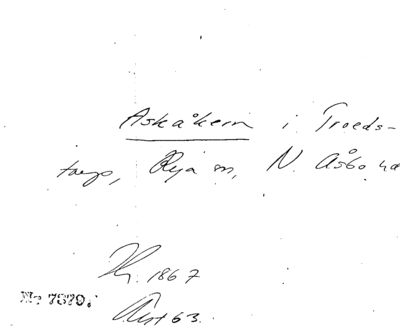 Askåkern i Troeds-
torp, Örja sn, N. Åsbo hd
Kr. 1867
Nr 7879.
Avst 63.